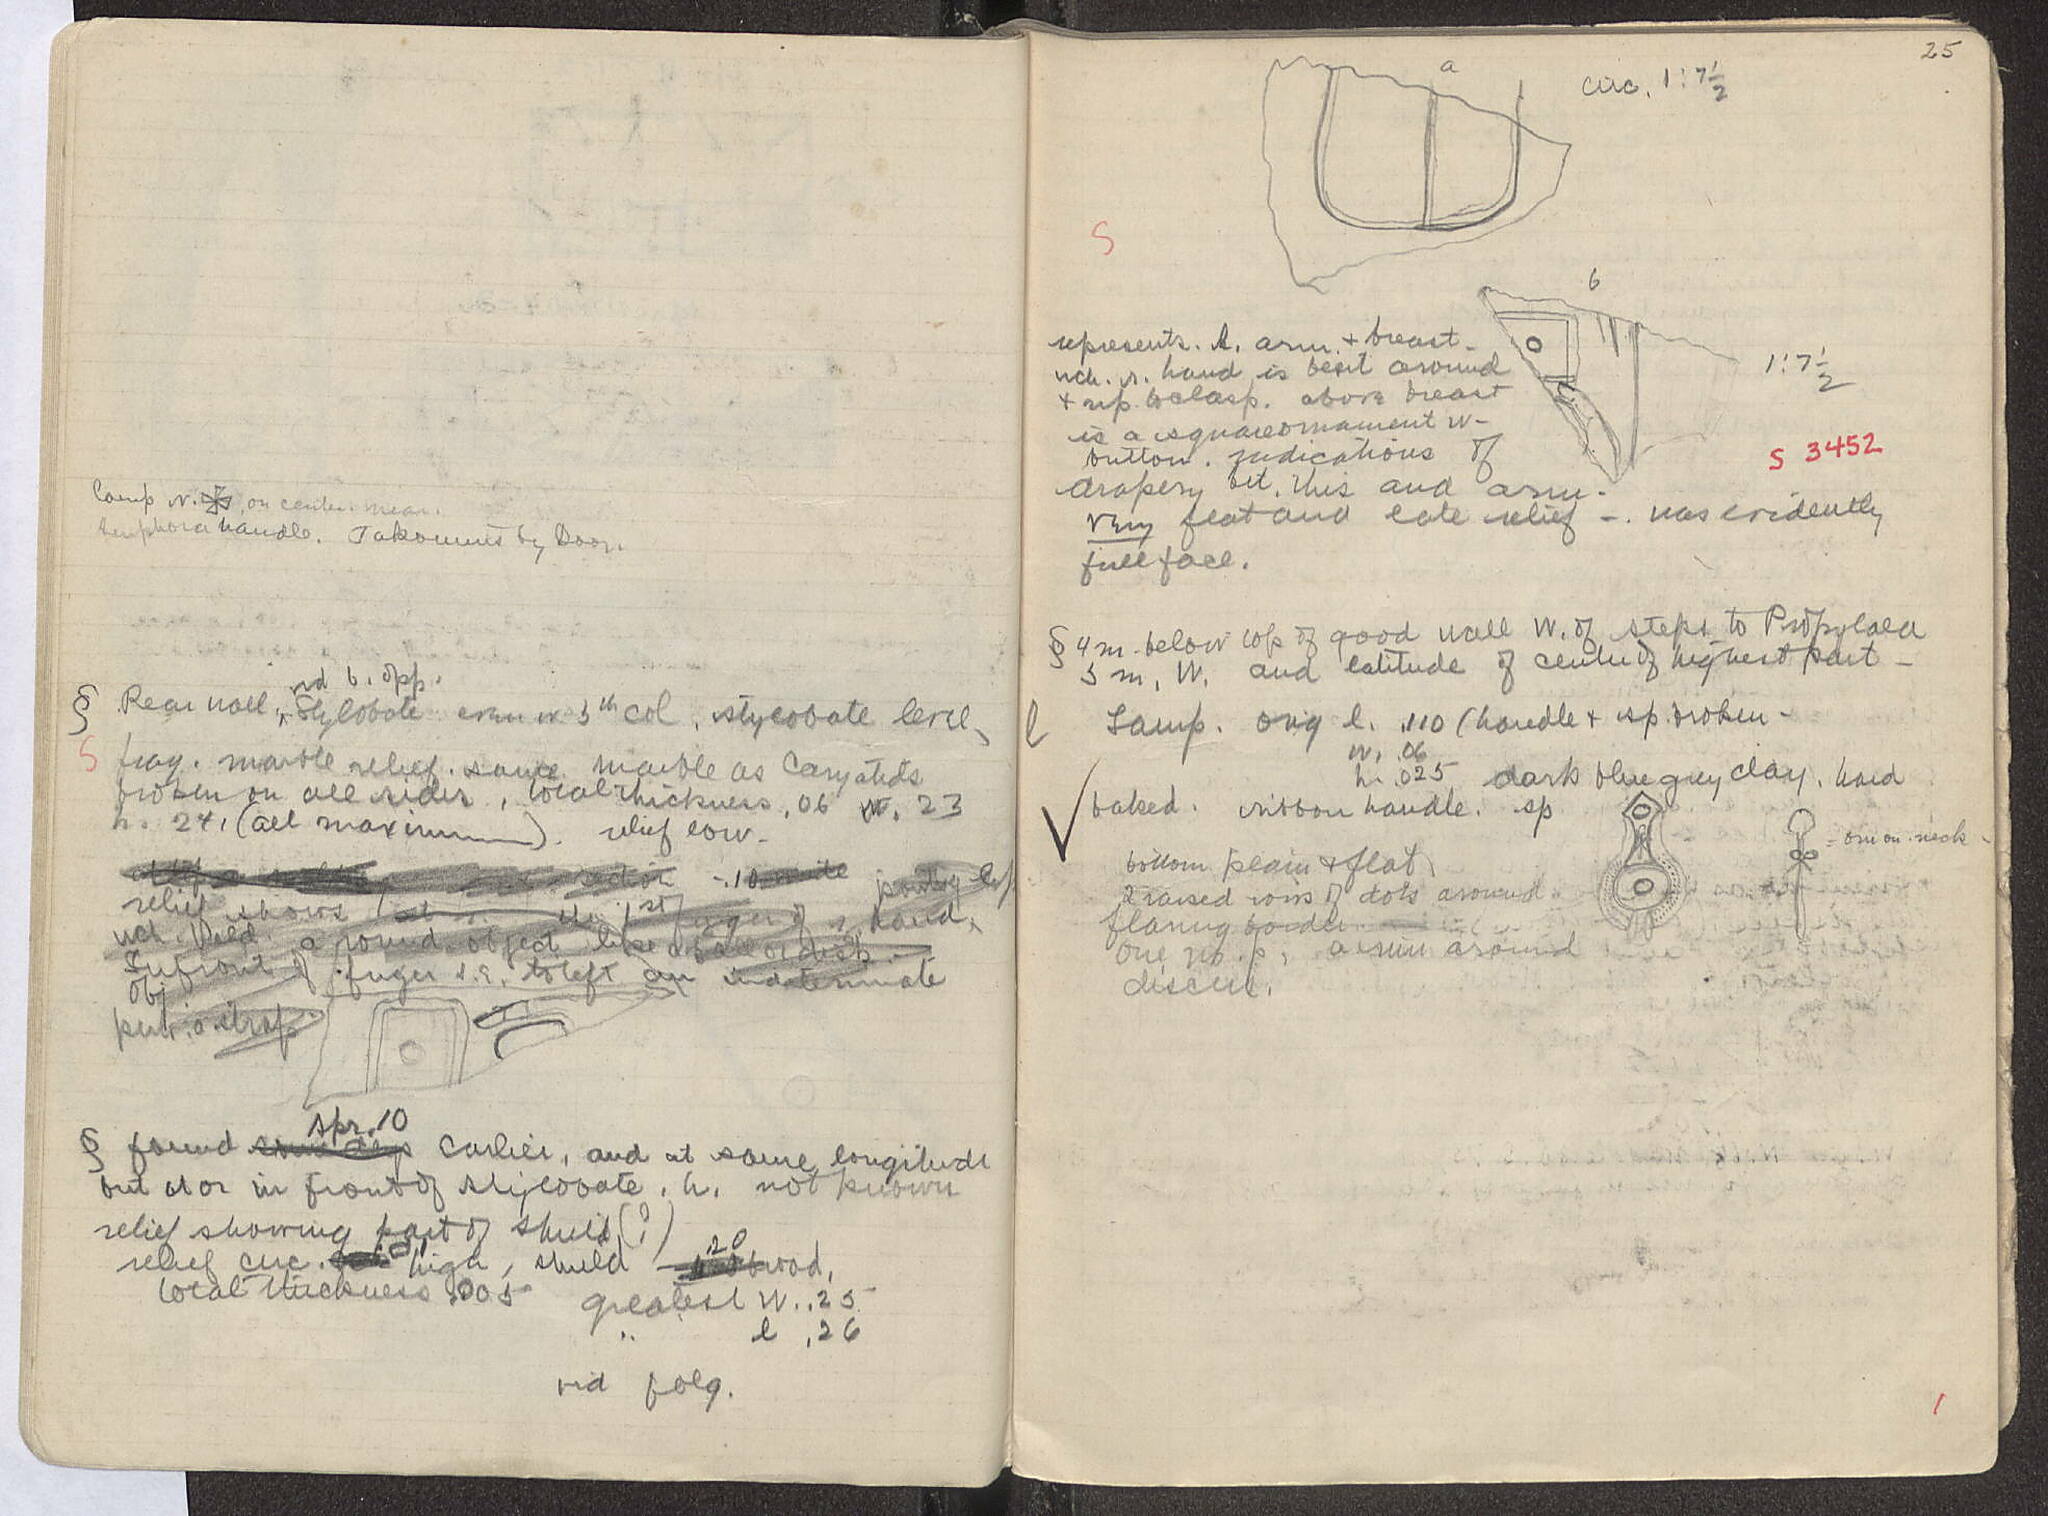 Lamp N. on center. mear.
Amphora handle. Takoumis by Door.
vid b. opp.
§ Rear wall, Stylobate even w 5th col, stylobate level,
S frag. marble relief. same marble as Caryatids
broken on all sides, total thickness .06 w. 23
h. 24, (all maximum). relief low.
.10
relief shows 1st finger of r. hand,
wch. held a round object like a ball or disk.
In front of finger s.e. to left an indeterminate
obj
perh. a strap
Apr. 10
§ found some days earlier, and at same longitude
but at or in front of stylobate. h. not known
relief showing part of shield (?)
relief circ. high, shield .20 broad,
total thickness .005 greatest W. .25
" l .26
vid folg.
25
a
circ. 1:7½
S
b
1:7½
S 3452
represents. l. arm + breast
wch. r. hand is bent around
+ up to clasp. above breast
is a square ornament w
button. Indications of
drapery bet. this and arm.
Very flat and late relief –. was evidently
full face.
§ 4 m. below top of good wall W. of steps to Propylaea
5 m. W. and latitude of center of highest part –
l Lamp. orig l. .110 (handle + sp broken –
w. .06
h. .025 dark blue grey clay. hard
baked. ribbon handle. sp
= orn on neck –
bottom plain + flat
2 raised rows of dots around
flaring border
one sp, a rim around
discus.
1